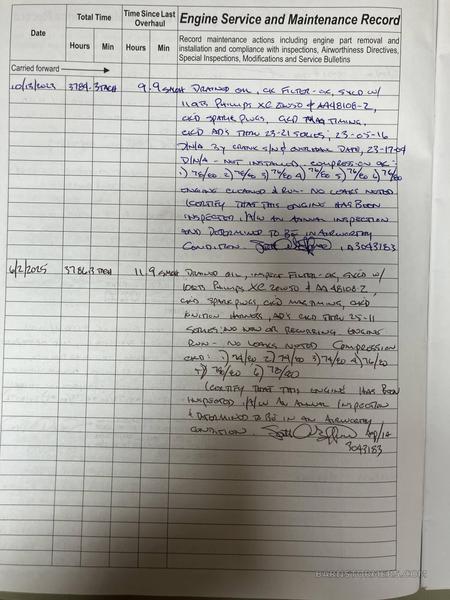 Date
Total Time
Hours
Min
Time Since Last Overhaul
Hours
Min
Engine Service and Maintenance Record
Record maintenance actions including engine part removal and
installation and compliance with inspections, Airworthiness Directives,
Special Inspections, Modifications and Service Bulletins
Carried forward
10/13/2023 3784.3 TACH 9.9 SMOH DRAINED OIL, CK FILTER-OK, SVCD W/
PHILLIPS XC 20W50 & AA48108-2,
CKD SPARK PLUGS, CKD MAG TIMING,
CKD AD'S THRU 23-21 SERIES; 23-05-16
D/N/A BY CRANK S/N & OVERHAUL DATE, 23-17-04
D/N/A - NOT INSTALLED. COMPRESSION CK:
1) 78/80 2) 78/80 3) 76/80 4) 76/80 5) 76/80 6) 76/80
ENGINE CLEANED & RUN - NO LEAKS NOTED
I CERTIFY THAT THIS ENGINE HAS BEEN
INSPECTED I/A/W AN ANNUAL INSPECTION
AND DETERMINED TO BE IN AIRWORTHY
CONDITION. IA3043183
6/2/2025 3786.3 TACH 11.9 SMOH DRAINED OIL, INSPECT FILTER-OK, SVCD W/
PHILLIPS XC 20W50 & AA48108-2,
CKD SPARK PLUGS, CKD MAG TIMING, CKD
IGNITION HARNESS, AD'S CKD THRU 25-11
SERIES: NO NEW OR RECURRING. ENGINE
RUN - NO LEAKS NOTED COMPRESSION
CKD: 1) 74/80 2) 74/80 3) 74/80 4) 76/80
5) 78/80 6) 78/80
I CERTIFY THAT THIS ENGINE HAS BEEN
INSPECTED I/A/W AN ANNUAL INSPECTION
& DETERMINED TO BE IN AN AIRWORTHY
CONDITION. A&P/IA
3043183
BARNSTORMERS.COM